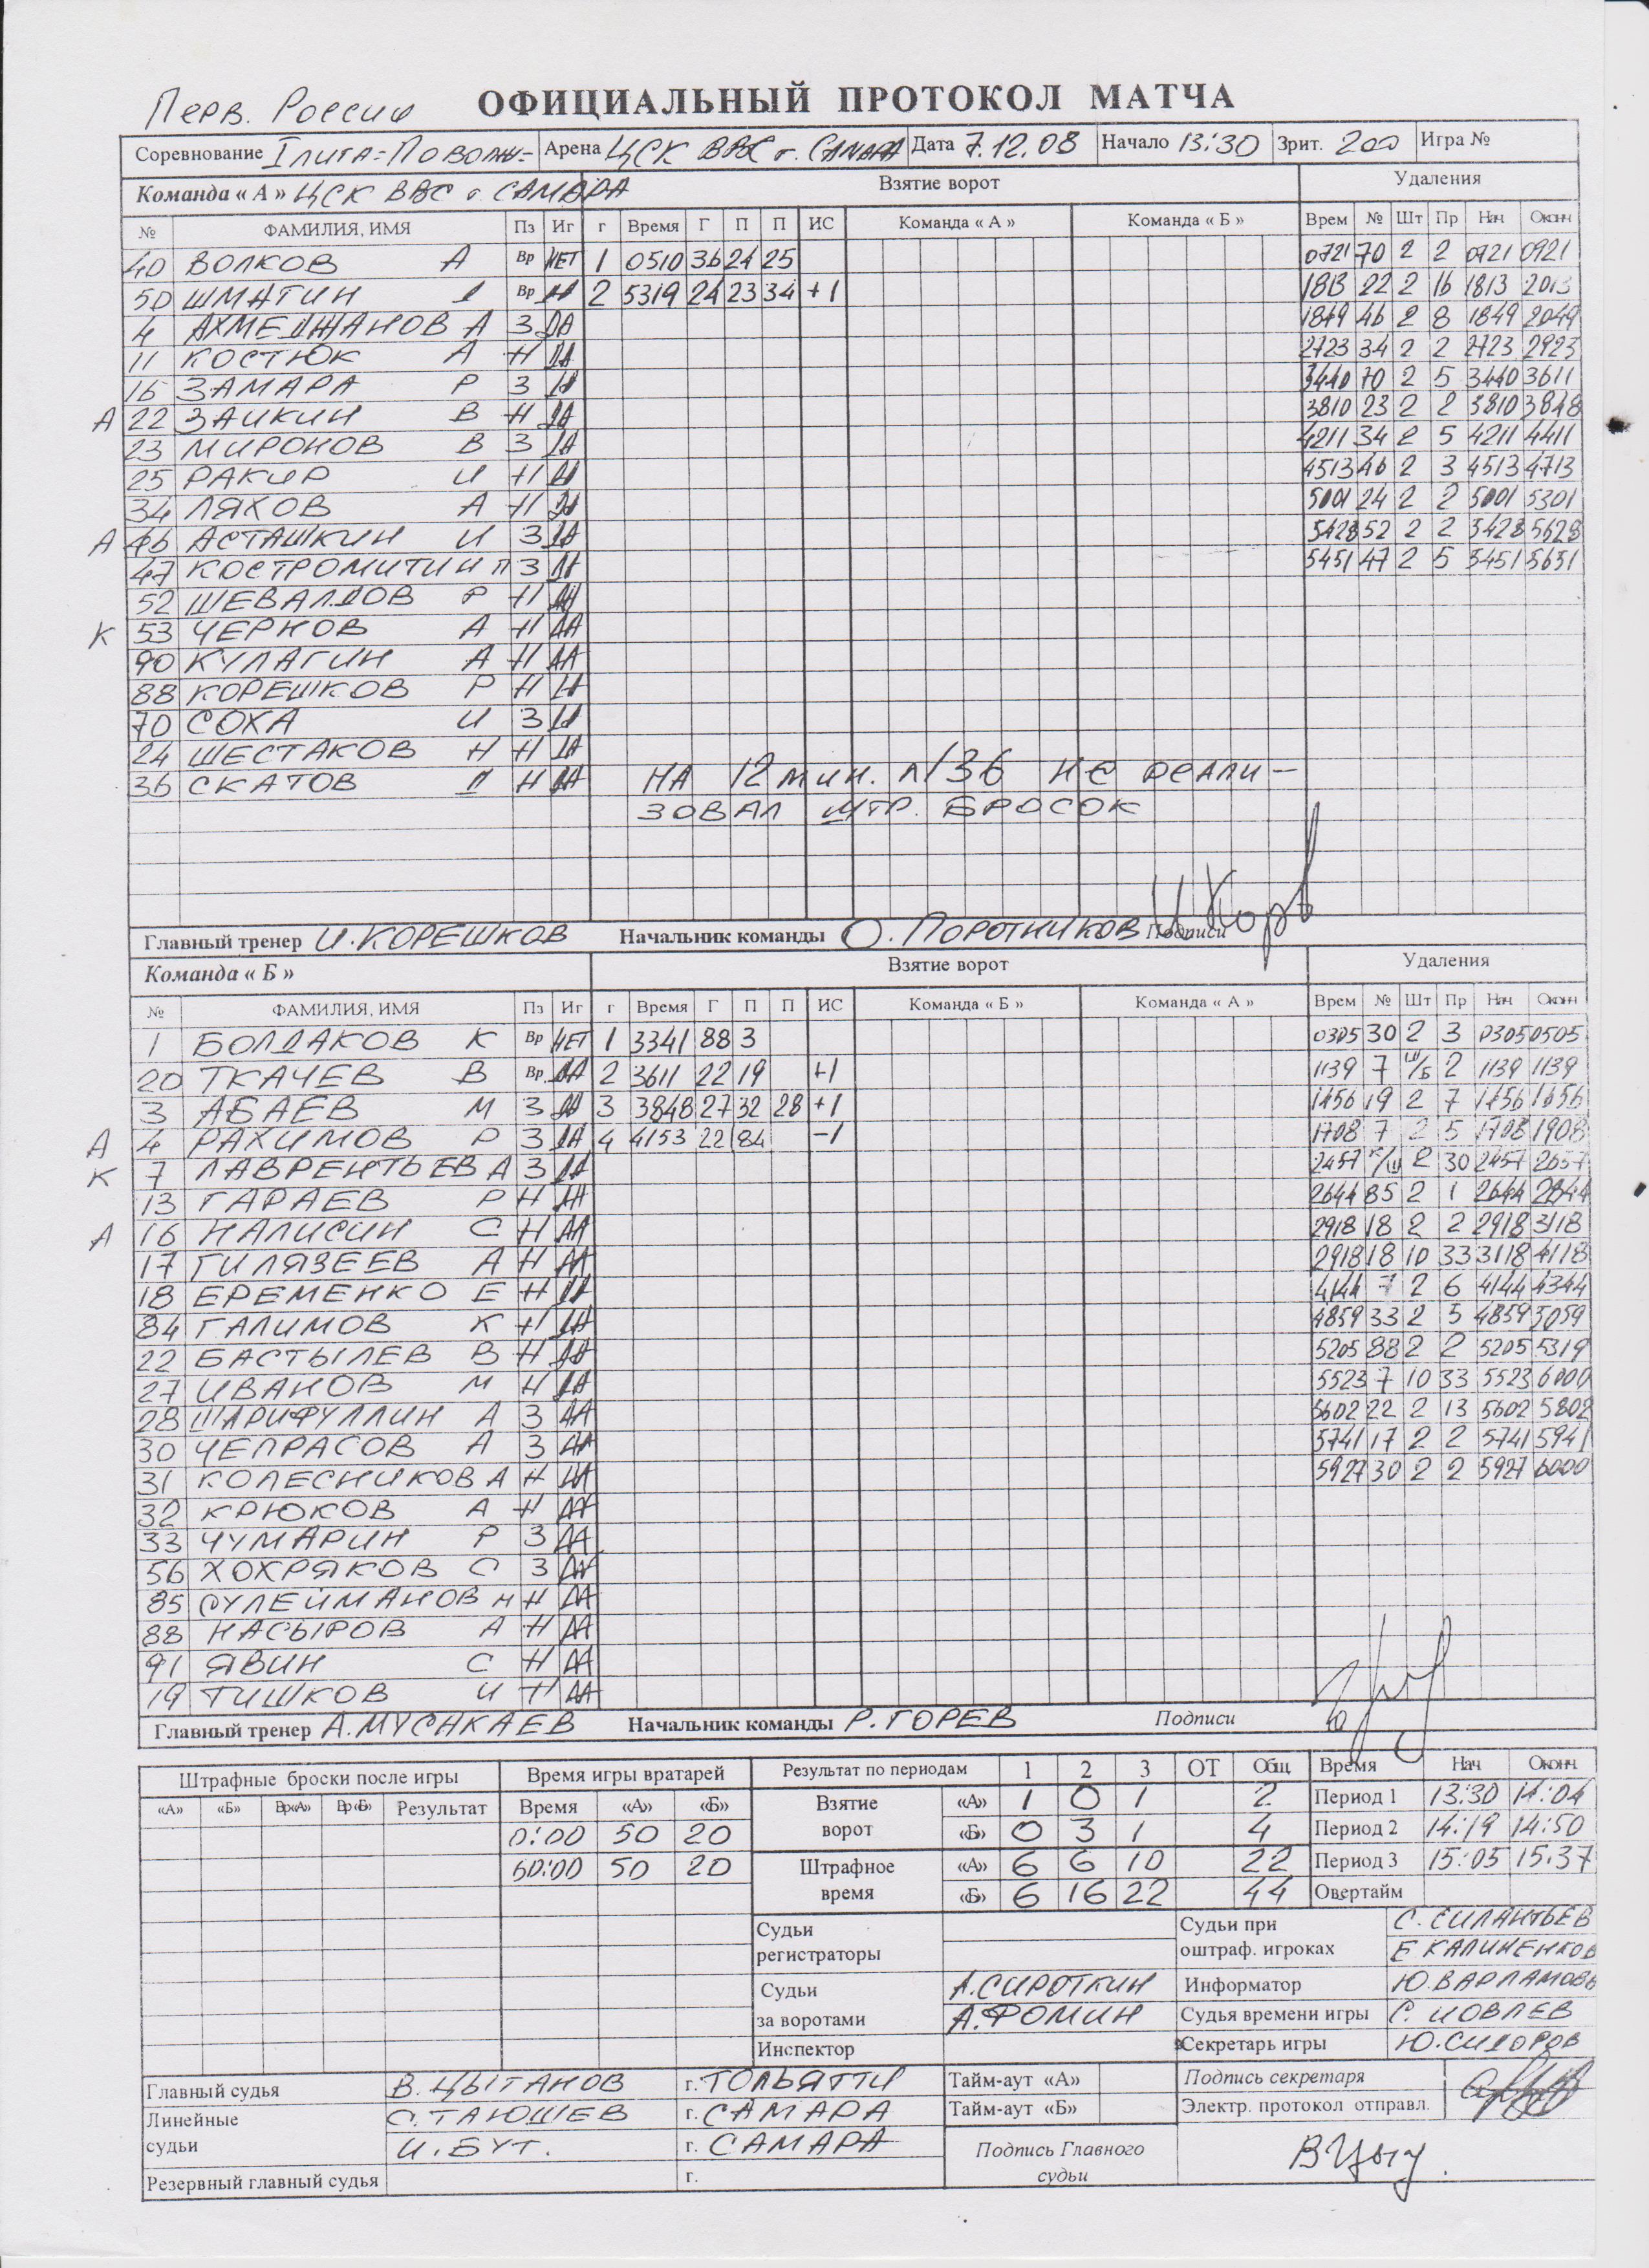 Перв. России ОФИЦИАЛЬНЫЙ ПРОТОКОЛ МАТЧА
Соревнование I лига=Поволж- Арена ЦСК ВВС г. САМАРА Дата 7.12.08 Начало 13:30 Зрит. 200 Игра №
Команда « А » ЦСК ВВС г. САМАРА Взятие ворот Удаления
№ ФАМИЛИЯ, ИМЯ Пз Иг г Время Г П П ИС Команда « А » Команда « Б » Врем № Шт Пр Нач Оконч
40 ВОЛКОВ А Вр НЕТ 1 0510 36 24 25 0721 70 2 2 0721 0921
50 ШМАГИН Д Вр ДА 2 5319 24 23 34 +1 1813 22 2 16 1813 2013
4 АХМЕДЖАНОВ А З ДА 1849 46 2 8 1849 2049
11 КОСТЮК А Н ДА 2723 34 2 2 2723 2923
16 ЗАМАРА Р З ДА 3440 70 2 5 3440 3611
А 22 ЗАИКИН В Н ДА 3810 23 2 2 3810 3848
23 МИРОНОВ В З ДА 4211 34 2 5 4211 4411
25 РАКИР И Н ДА 4513 46 2 3 4513 4713
34 ЛЯХОВ А Н ДА 5001 24 2 2 5001 5301
А 46 АСТАШКИН И З ДА 5428 52 2 2 5428 5628
47 КОСТРОМИТИН П З ДА 5451 47 2 5 5451 5651
52 ШЕВАЛДОВ Р Н ДА
К 53 ЧЕРНОВ А Н ДА
90 КУЛАГИН А Н ДА
88 КОРЕШКОВ Р Н ДА
70 СОХА И З ДА
24 ШЕСТАКОВ Н Н ДА
36 СКАТОВ Д Н ДА НА 12 мин. п/36 НЕ РЕАЛИ-
ЗОВАЛ ШТР. БРОСОК
Главный тренер И. КОРЕШКОВ Начальник команды О. ПОРОТНИКОВ Подписи
Команда « Б » Взятие ворот Удаления
№ ФАМИЛИЯ, ИМЯ Пз Иг г Время Г П П ИС Команда « Б » Команда « А » Врем № Шт Пр Нач Оконч
1 БОЛДАКОВ К Вр НЕТ 1 3341 88 3 0305 30 2 3 0305 0505
20 ТКАЧЕВ В Вр ДА 2 3611 22 19 +1 1139 7 ш/Б 2 1139 1139
3 АБАЕВ М З ДА 3 3848 27 32 28 +1 1456 19 2 7 1456 1656
А 4 РАХИМОВ Р З ДА 4 4153 22 84 -1 1708 7 2 5 1708 1908
К 7 ЛАВРЕНТЬЕВ А З ДА 2457 к/ш 2 30 2457 2657
13 ГАРАЕВ Р Н ДА 2644 85 2 1 2644 2844
А 16 НАЛИСИН С Н ДА 2918 18 2 2 2918 3118
17 ГИЛЯЗЕЕВ А Н ДА 2918 18 10 33 3118 4118
18 ЕРЕМЕНКО Е Н ДА 4144 7 2 6 4144 4344
84 ГАЛИМОВ К Н ДА 4859 33 2 5 4859 5059
22 БАСТЫЛЕВ В Н ДА 5205 88 2 2 5205 5319
27 ИВАНОВ М Н ДА 5523 7 10 33 5523 6000
28 ШАРИФУЛЛИН А З ДА 5602 22 2 13 5602 5802
30 ЧЕПРАСОВ А З ДА 5741 17 2 2 5741 5941
31 КОЛЕСНИКОВ А Н ДА 5927 30 2 2 5927 6000
32 КРЮКОВ А Н ДА
33 ЧУМАРИН Р З ДА
56 ХОХРЯКОВ С З ДА
85 СУЛЕЙМАНОВ Н Н ДА
88 НАСЫРОВ А Н ДА
91 ЯВИН С Н ДА
19 ТИШКОВ И Н ДА
Главный тренер А. МУСАКАЕВ Начальник команды Р. ГОРЕВ Подписи
Штрафные броски после игры Время игры вратарей Результат по периодам 1 2 3 ОТ Общ Время Нач Оконч
«А» «Б» Вр«А» Вр«Б» Результат Время «А» «Б» Взятие «А» 1 0 1 2 Период 1 13:30 14:04
0:00 50 20 ворот «Б» 0 3 1 4 Период 2 14:19 14:50
60:00 50 20 Штрафное «А» 6 6 10 22 Период 3 15:05 15:37
время «Б» 6 16 22 44 Овертайм
Судьи Судьи при С. СИЛАНТЬЕВ
регистраторы оштраф. игроках Е КАЛИНЕНКОВ
Судьи А. СИРОТКИН Информатор Ю. ВАРЛАМОВ
за воротами А. ФОМИН Судья времени игры С. ИОВЛЕВ
Инспектор Секретарь игры Ю. СИДОРОВ
Главный судья В. ЦЫГАНОВ г. ТОЛЬЯТТИ Тайм-аут «А» Подпись секретаря
Линейные С. ТАЮШЕВ г. САМАРА Тайм-аут «Б» Электр. протокол отправл.
судьи И. БУТ. г. САМАРА Подпись Главного
Резервный главный судья г. судьи